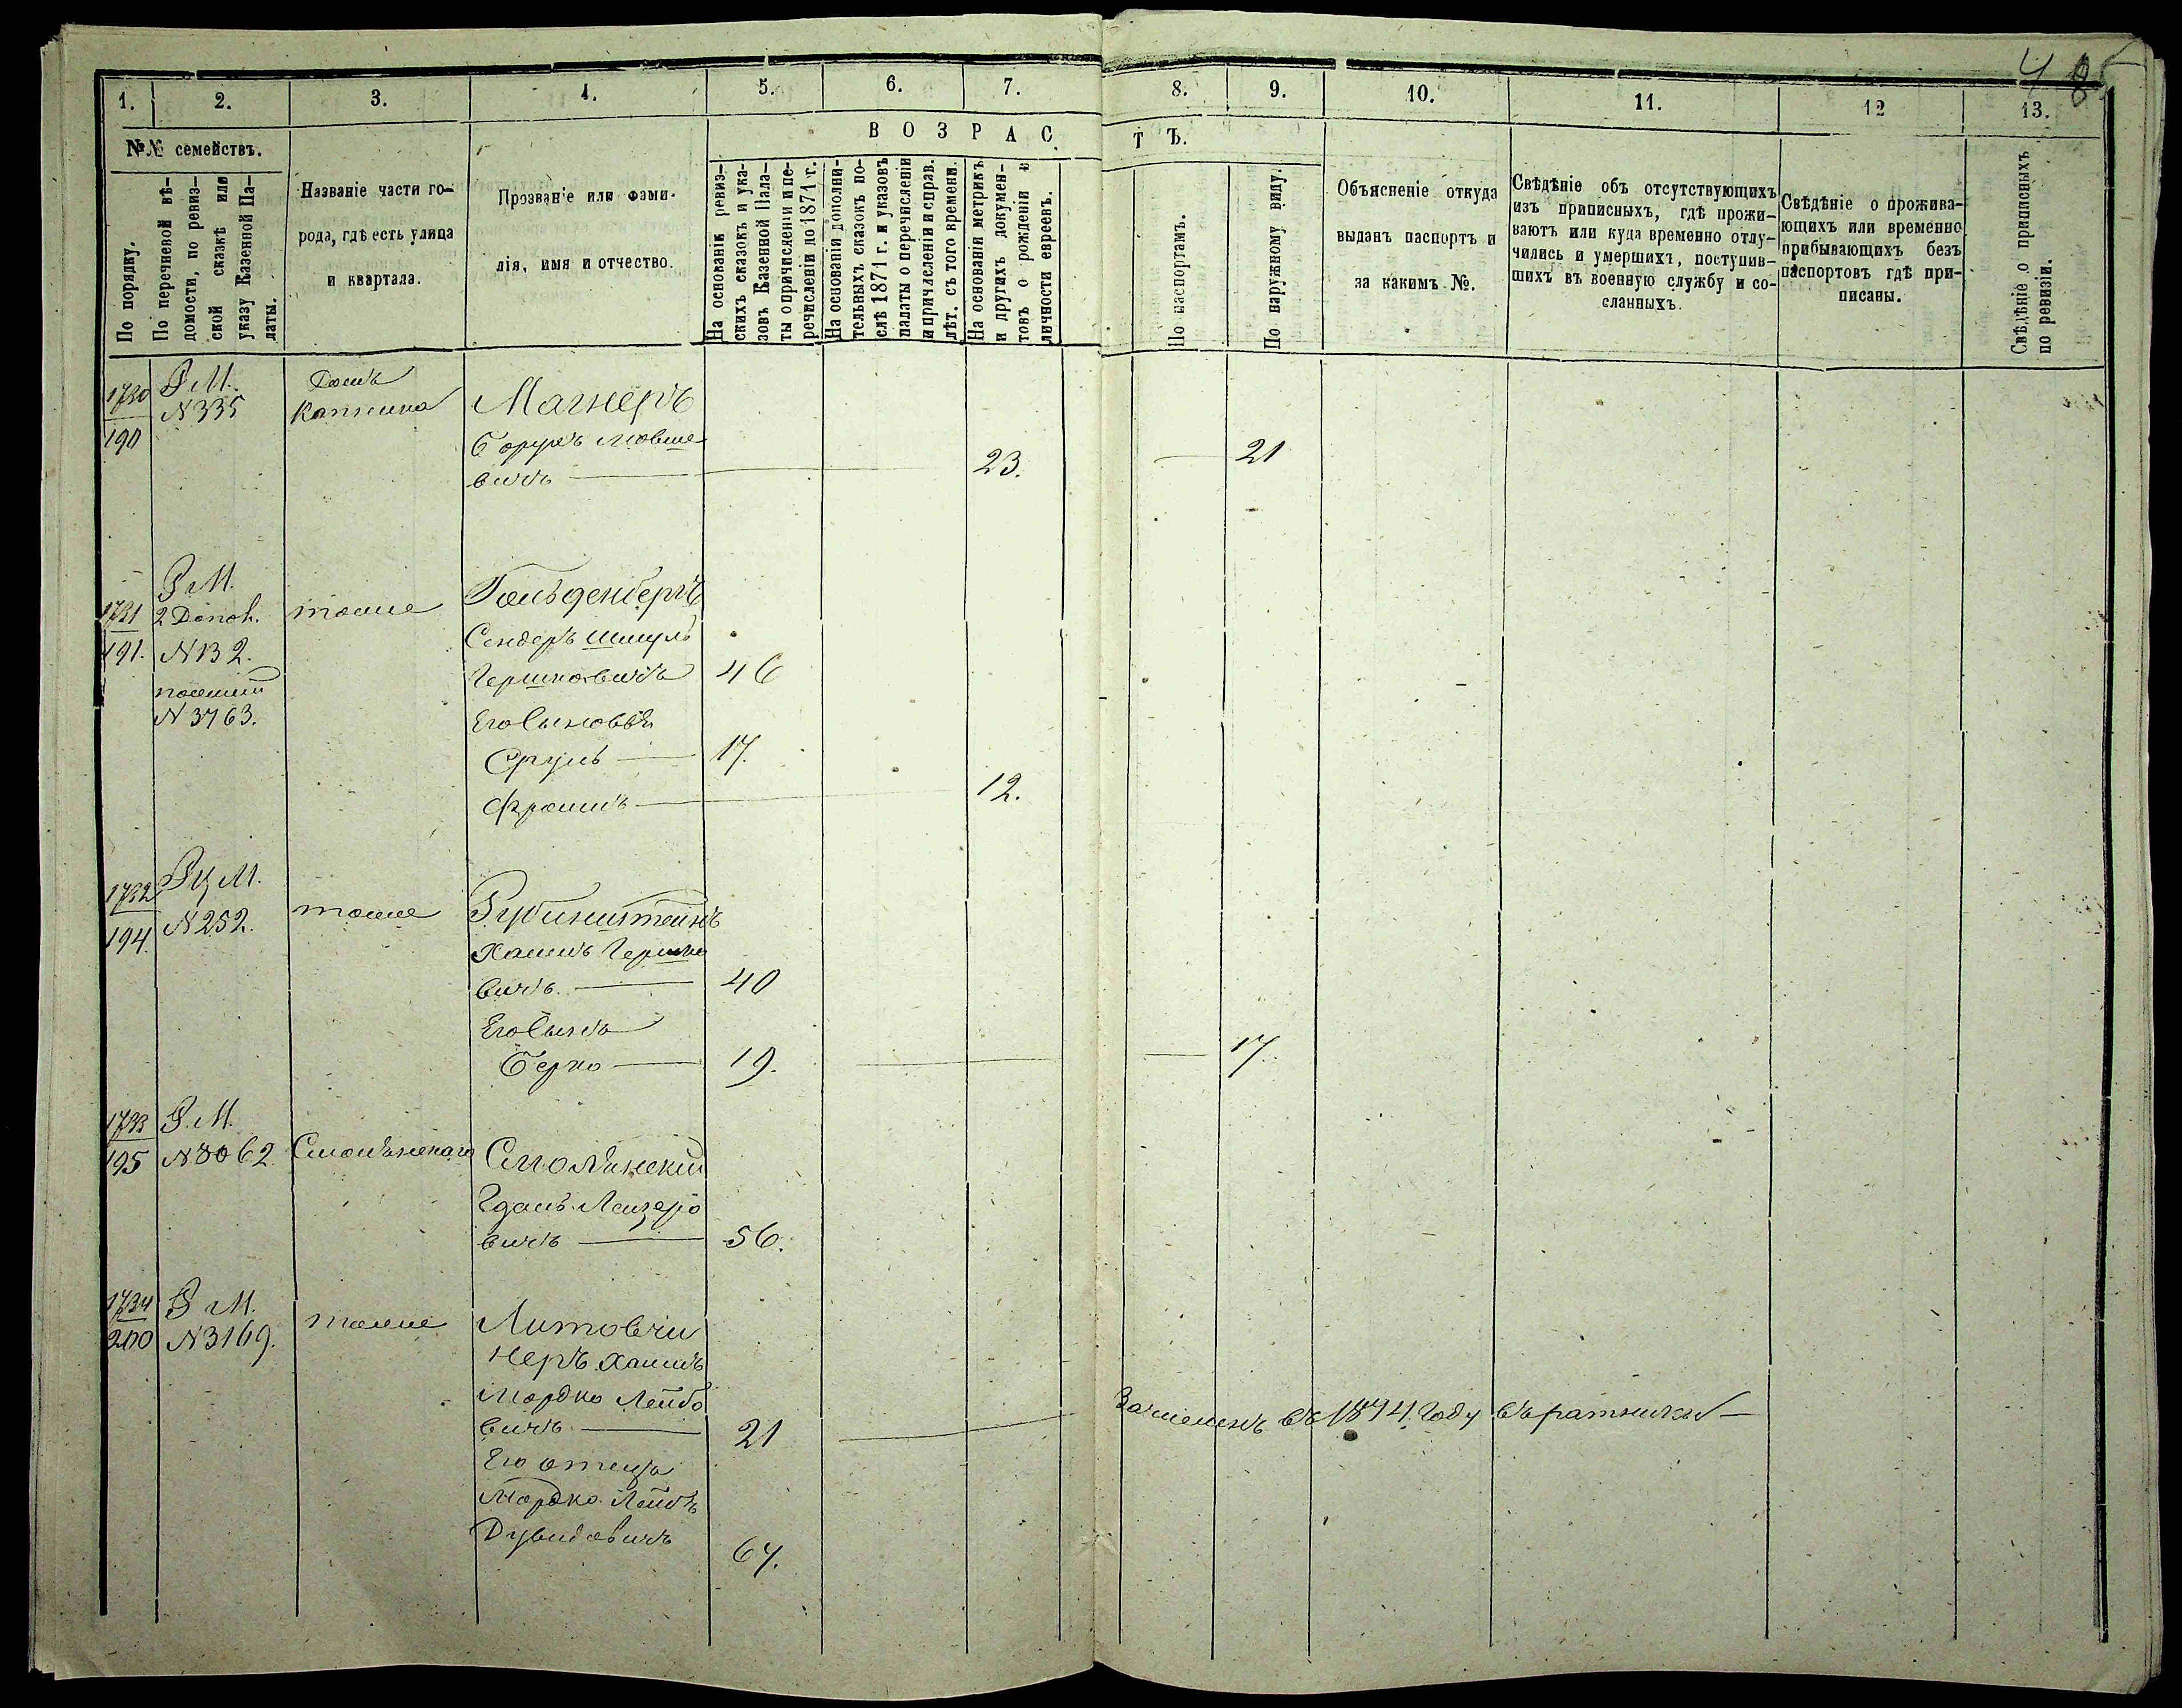 48
1. 2. 3. 4. 5. 6. 7. 8. 9. 10. 11. 12 13.
№№ семействъ.
По порядку.
По перечневой вѣ-
домости, по ревиз-
ской сказкѣ или
указу Казенной Па-
латы.
Названіе части го-
рода, гдѣ есть улица
и квартала.
Прозваніе или фами-
лія, имя и отчество.
ВОЗРАСТЪ.
На основаніи ревиз-
скихъ сказокъ и ука-
зовъ Казенной Пала-
ты о причисленіи и пе-
речисленіи до 1871 г.
На основаніи дополни-
тельныхъ сказокъ по-
слѣ 1871 г. и указовъ
палаты о перечисленіи
и причисленіи и справ.
лѣт. съ того времени.
На основаніи метрикъ
и другихъ докумен-
товъ о рожденіи и
личности евреевъ.
По паспортамъ.
По наружному виду.
Объясненіе откуда
выданъ паспортъ и
за какимъ №.
Свѣдѣніе объ отсутствующихъ
изъ приписныхъ, гдѣ прожи-
ваютъ или куда временно отлу-
чились и умершихъ, поступив-
шихъ въ военную службу и со-
сланныхъ.
Свѣдѣніе о прожива-
ющихъ или временно
прибывающихъ безъ
паспортовъ гдѣ при-
писаны.
Свѣдѣніе о приписныхъ
по ревизіи.
1730 Р М. Домъ
190 N 335 Магнеръ
Борухъ Мовше
вичъ 23. 21
Р М.
1731 2 Допол. тоже Гольденбергъ
191. N 132. Сендеръ Шмуль
Гершковичъ 46
N 3763. Его Сыновья
Сруль 17.
Фроимъ 12.
1732 Р М. тоже Рубинштейнъ
194. N 252. Хаимъ Гершко
вичъ. 40
Его Сынъ
Берко 19. 17.
1733 Р. М.
195 N 3062 Смолянскаго Смолянскій
Лейзеро
вичъ 56.
1734 Р М. тоже Литовчи
200 N 3169. неръ Хаимъ
Мордко Лейбо
вичъ 21 Зачисленъ въ 1874 году въ ратники
Его отецъ
Мордко Лейбъ
Дувидовичъ 64.